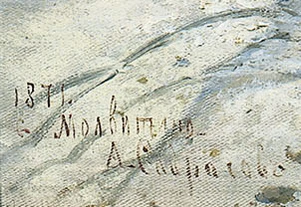 1871.
с. Молвитино.
А. Саврасовъ